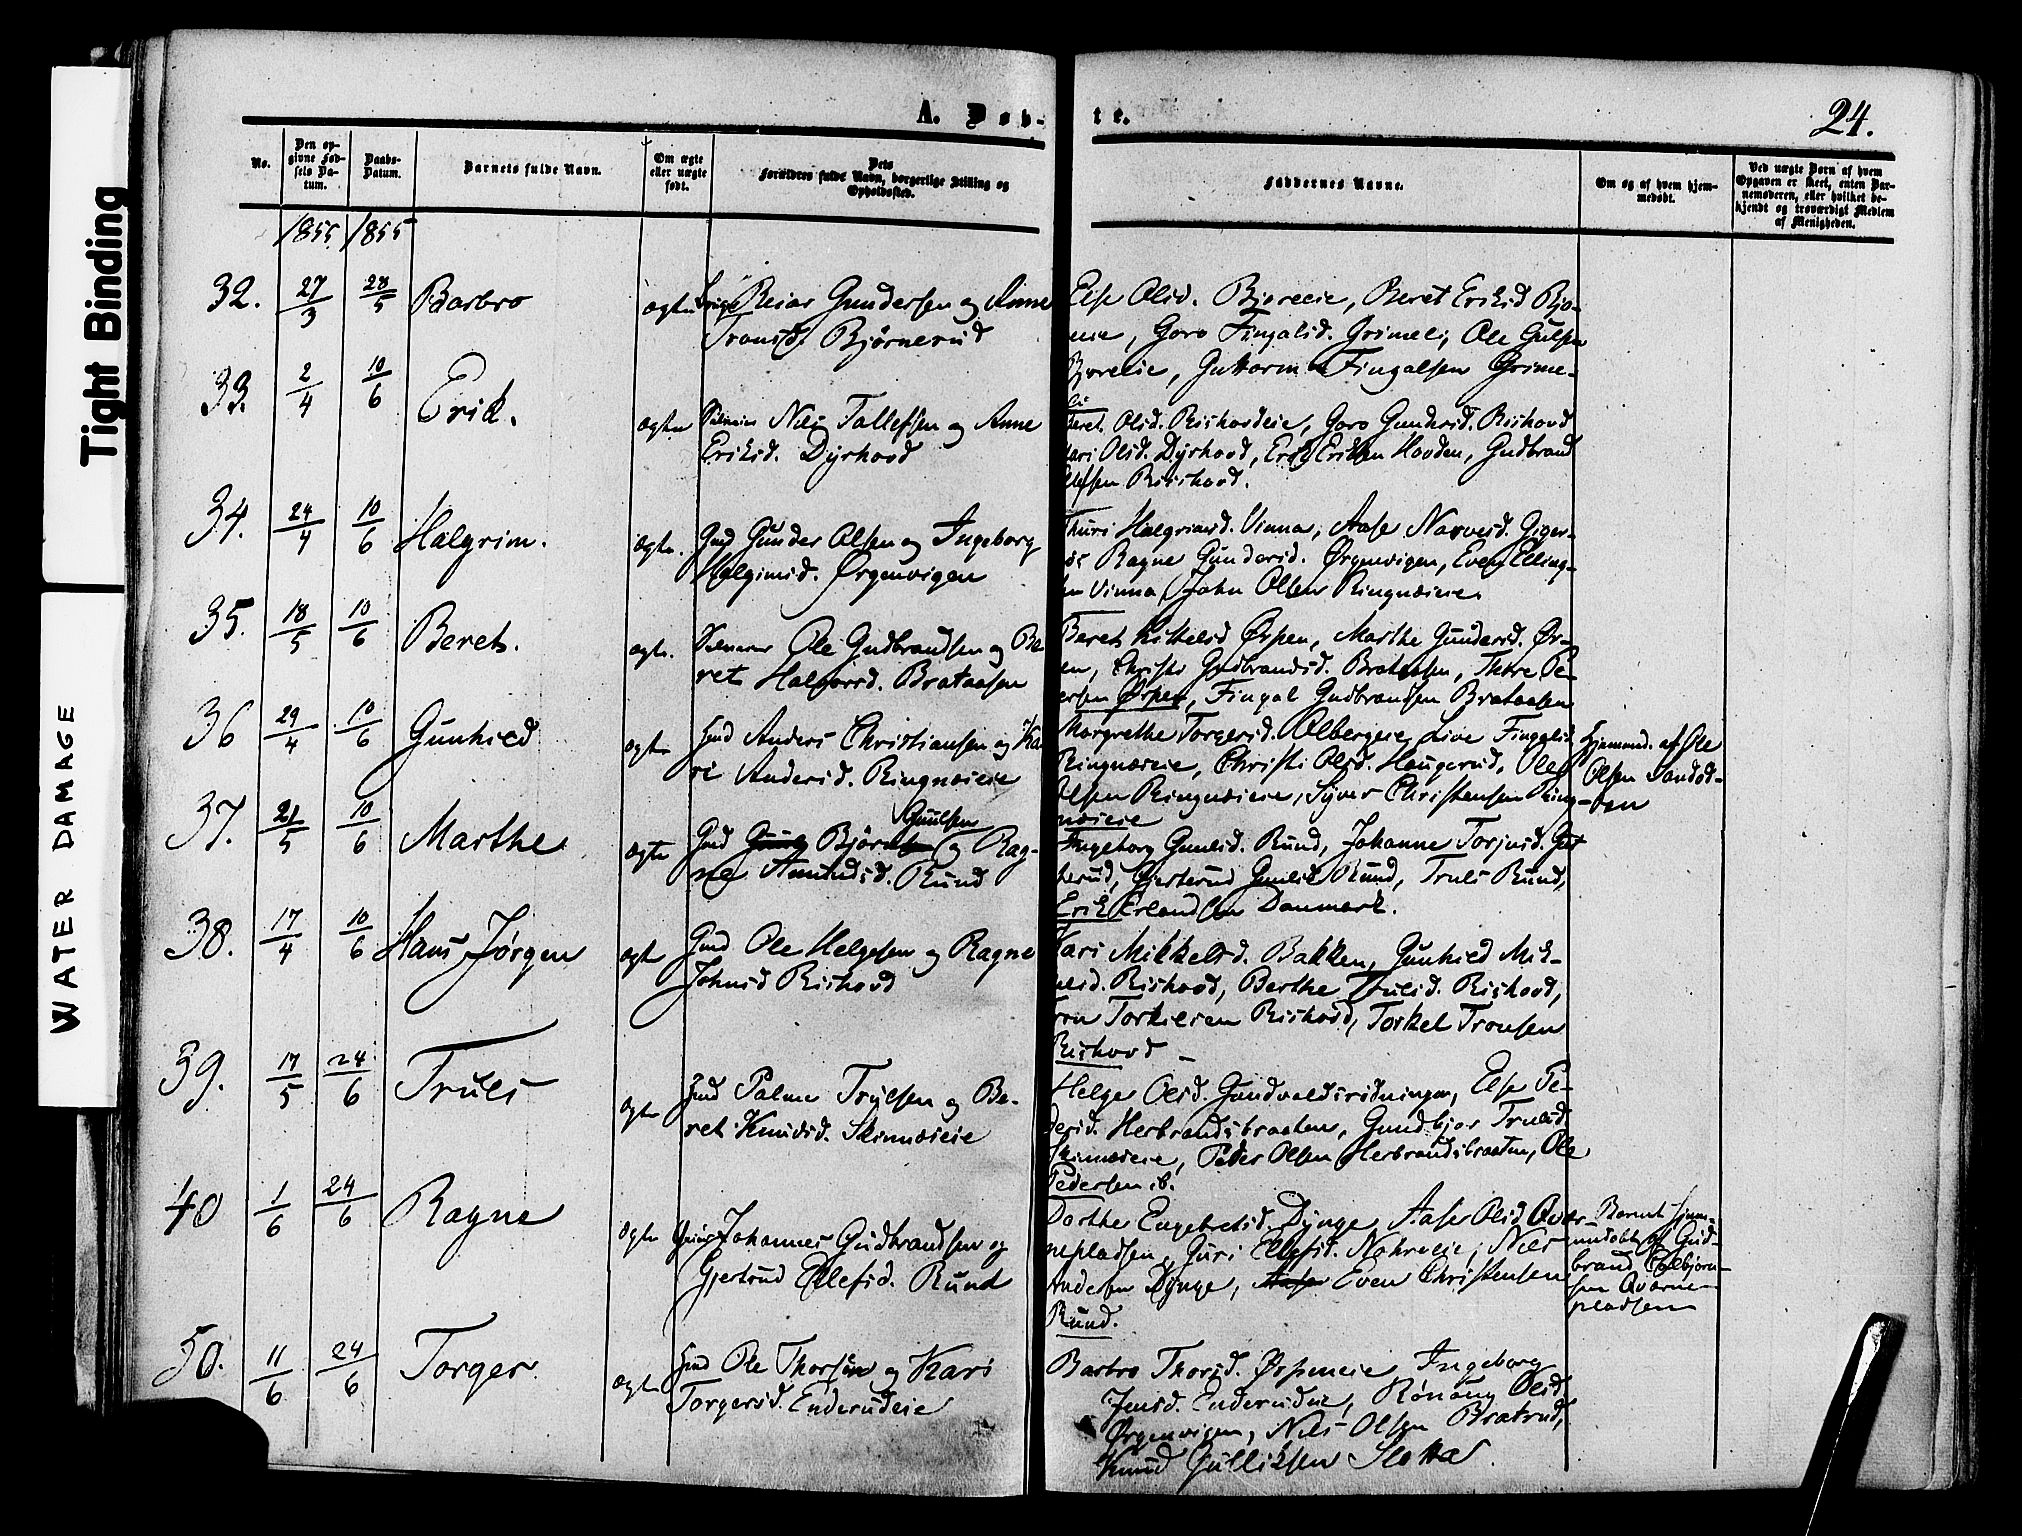 Tight Binding
WATER DAMAGE
A. Døb-
te.
24.
No.
Den op-
givne Fød-
sels Da-
tum.
Daabs-
Datum.
Barnets fulde Navn.
Om ægte
eller uægte
født.
Dets
Forældres fulde Navn, borgerlige Stilling og
Opholdssted.
Faddernes Navne.
Om og af hvem hjem-
medøbt.
Ved uægte Børn af hvem
Opgaven er skeet, enten Bar-
nemoderen, eller hvilket be-
kjendt og troværdigt Medlem
af Menigheden.
1855 1855
32. 27/3 28/5 Barbro ægte Reiar Gundersen og Anne
Tronsd. Bjørnerud
Else Olsd. Bjoreeie, Beret Eriksd Bjo-
eie, Goro Fingalsd. Grimeli, Ole Gulsen
Bjoreeie, Guttorm Fingalsen Grime-
li
33. 2/4 10/6 Erik. ægte Selveier Nils Tollefsen og Anne
Eriksd. Dyrhovd
Beret Olsd. Rishovdeie, Goro Gundersd. Rishovd
Kari Olsd. Dyrhovd, Erik Eriksen Hovden, Gudbrand
Rishovd.
34. 24/4 10/6 Halgrim. ægte. Gmd Gunder Olsen og Ingeborg
Halgrimsd. Ørgenvigen
Thuri Halgrimsd. Vinna, Aase Narvesd. Giger-
Ragne Gundersd. Ørgenvigen, Even Elling-
sen Vinna, John Olsen Ringnæseie
35. 18/5 10/6 Beret. ægte. Selveier Ole Gudbrandsen og Be
ret Halvorsd. Brataasen
Beret Kittelsd Ørpen, Marthe Gundersd. Ør-
pen, Christi Gudbrandsd. Brataasen, Thore Pe-
dersen Ørpen, Fingal Gudbrandsen Brataasen
36 29/4 10/6 Gunhild ægte Hmd Anders Christiansen og Ka
ri Andersd. Ringnæseie
Margrethe Torgersd. Albergeie, Live Fingalsd.
Ringnæseie, Christi Olsd. Haugerud, Ole
Olsen Ringnæseie, Syver Christensen Ring-
næseie
Hjemmed. af Ole
Olsen Sandsd-
37. 21/5 10/6 Marthe ægte Gmd Bjørn Guulsen og Rag-
ne Amundsd. Rund
Ingeborg Gunlsd. Rund, Johanne Torjusd. Gut
terud, Gjertrud Rund, Truls Rund,
Erik Erlandsen Danmark.
38. 17/4 10/6 Hans Jørgen ægte Gmd Ole Helgesen og Ragne
Johnsd Rishovd
Kari Mikkelsd. Bakken, Gunhild Mik-
kelsd. Rishovd, Berthe Trulsd. Rishovd,
Tron Torkilsen Rishovd, Torkel Tronsen
Rishovd
39. 17/5 24/6 Truls ægte Hmd Palme Trulsen og Be-
ret Knudsd. Skinnæseie
Helge Olsd. Gundvaldsrudningen, Else Pe-
dersd. Herbrandsbraaten, Gundbjor Trulsd.
Skinnæseie, Peder Olsen Herbrandsbraaten, Ole
Pedersen ib.
40 1/6 24/6 Ragne ægte Johannes Gudbrandsen og
Gjertrud Ellefsd. Rund
Dorthe Engebretsd. Dynge, Aase Olsd Qvær-
nepladsen, Guri Ellefsd. Nahreeie, Nils
Andersen Dynge, Even Christensen
Rund.
Barnet hjem-
medøbt af Gud-
brand Colbjørn-
sen Qværne-
pladsen
50. 11/6 24/6 Torger. ægte Hmd Ole Thorsen og Kari
Torgersd. Enderudeie
Barbro Thorsd. Ørpeneie, Ingeborg
Jensd. Enderudeie, Rønaug Olsd
Ørgenvigen, Nils Olsen Bratrud,
Knud Gulliksen Sletta.